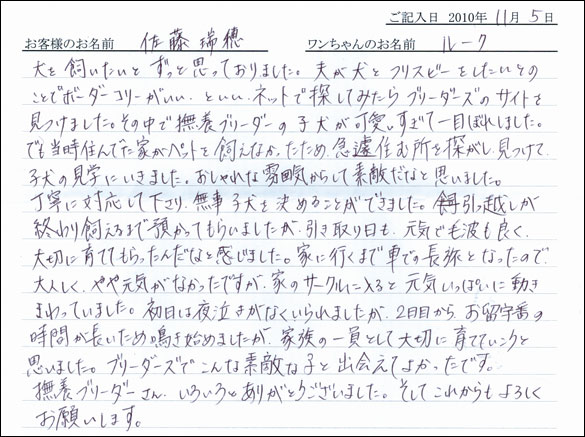 ご記入日 2010年 11月 5日
お客様のお名前 佐藤 瑞穂 ワンちゃんのお名前 ルーク
犬を飼いたいとずっと思っておりました。夫が犬とフリスビーをしたいとの
ことでボーダーコリーがいい、といい、ネットで探してみたらブリーダーズのサイトを
見つけました。その中で撫養ブリーダーの子犬が可愛いすぎて一目ぼれしました。
でも当時住んでた家がペットを飼えなかったため、急遽住む所を探がし、見つけて、
子犬の見学にいきました。おしゃれな雰囲気からして素敵だなと思いました。
丁寧に対応して下さり、無事子犬を決めることができました。引っ越しが
終わり飼えるまで預かってもらいましたが、引き取り日も、元気で毛波も良く、
大切に育ててもらったんだなと感じました。家に行くまで車での長旅となったので、
大人しく、やや元気がなかったですが、家のサークルに入ると元気いっぱいに動き
まわっていました。初日は夜泣きがなくいられましたが、2日目から、お留守番の
時間が長いため鳴き始めましたが、家族の一員として大切に育てていこうと
思いました。ブリーダーズでこんな素敵な子と出会えてよかったです。
撫養ブリーダーさん、いろいろとありがとうございました。そしてこれからもよろしく
お願いします。